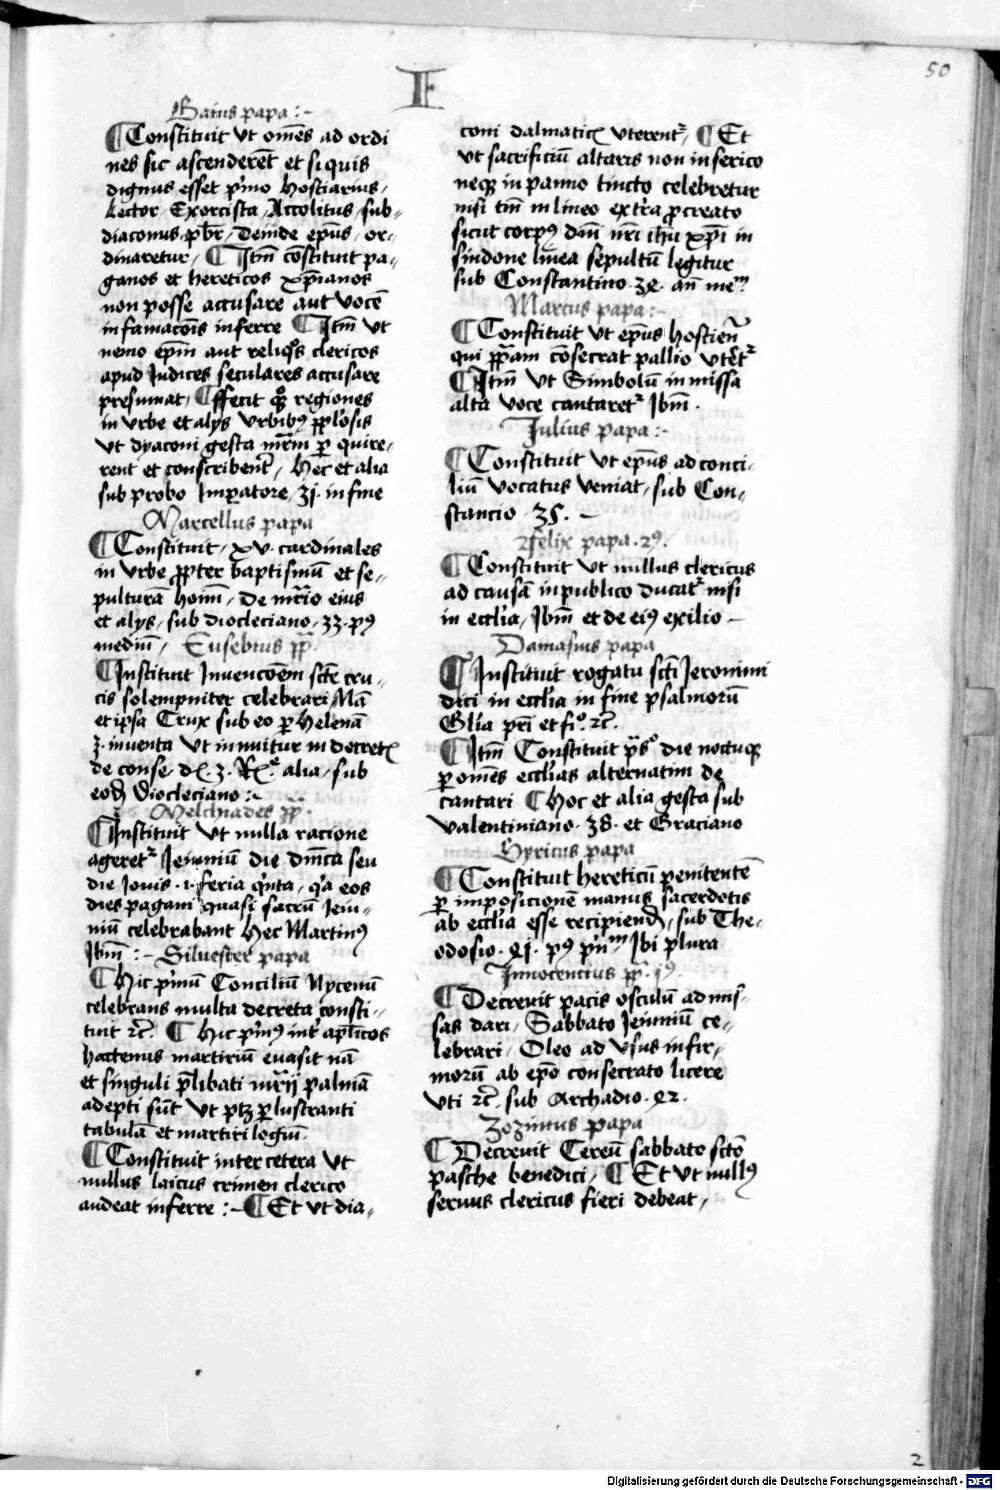 50
F
Gaius papa :~
¶ Constituit vt om̄es ad ordi
nes sic ascenderēt et si quis
dignus esset p'mo hostiarius /
Lector / Exorcista / Accolitus / sub=
diaconus / pb̄r / deinde ep̄us / or=
dinaretur / ¶ Itm̄ cōstituit pa=
ganos et hereticos xp̄ianos
non posse accusare aut vocē
infamacōis inferre ¶ Itm̄ vt
nemo ep̄m aut reliq̊s clericos
apud Iudices seculares accusare
presumat / ¶ ffecit qq̊ regiones
in vrbe et alijs vrbibꝫ
vt dyaconi gesta mr̄m p̲ quire=
rent et conscribent / hec et alia
sub probo Imp̲atore / 31. in fine
Marcellus papa
¶ Constituit / xv. cardinales
in vrbe ꝓpter baptismū et se=
pulturā hoīm / de mr̄io eius
et alijs / sub diocleciano / 33. pꝰ
mediū / Eusebius pp̄.
¶ Instituit Inuencōem sc̄te cru=
cis solempniter celebrari Nā
et ipsa Crux sub eo p̲ Helenā
3. inuenta vt innuitur in decret̄
de conse. d. 3. alia / sub
eod̄ Diocleciano :~
Melchiades pp̄.
¶ Instituit vt nulla racione
ageret᷑ Ieiuniū die dn̄ica seu
die Iouis .i. feria q'nta / q'a eos
dies pagani quasi sacrū Ieiu=
niū celebrabant hec Martinꝰ
Ibm̄ :~ Siluester papa
¶ Hic p'mū Conciliū Nycenū
celebrans multa decreta consti=
tuit ⁊c̄. ¶ Hic p'mꝰ int' ap̄licos
hactenus martiriū euasit nā
et singuli p̄libati mr̄ij palmā
adepti sūt vt ptꝫ p̲lustranti
tabulā et martirilogiū.
¶ Constituit inter cetera vt
nullus laicus crimen clerico
audeat inferre :~ ¶ Et vt dia=
coni dalmatica vterent᷑ / ¶ Et
vt sacrificiū altaris non in serico
neqꝫ in panno tincto celebretur
nisi tm̄ in lineo ex tr̄a ꝓcreato
sicut corpꝰ dn̄i nr̄i ihū xp̄i in
sindone linea sepultū legitur
sub Constantino. 34. an̄ meᵐ
Marcus papa :~
¶ Constituit vt ep̄us hostien̄
qui pp̄am cōsecrat pallio vtet᷑
¶ Itm̄ vt Simbolū in missa
alta voce cantaret᷑ Ibm̄.
Julius papa :~
¶ Constituit vt ep̄us ad conci=
liū vocatus veniat / sub Con=
stancio. 35. ~
ffelix papa. 2ꝰ.
¶ Constituit vt nullus clericus
ad causā in publico ducat᷑ nisi
in eccl'ia / Ibm̄ et de eiꝰ exilio ~
Damasus papa
¶ Instituit rogatu sc̄ti Jeronimi
dici in eccl'ia in fine psalmorū
Gl'ia pr̄i et fi°. ⁊c̄.
¶ Itm̄ Constituit die noctuqꝫ
p̲ om̄es eccl'ias alternatim de
cantari ¶ hoc et alia gesta sub
valentiniano. 38. et Graciano
Syricus papa
¶ Constituit hereticū penitentē
p̲ imposicionē manus sacerdotis
ab eccl'ia esse recipiend̄ / sub The=
odosio. 41. pꝰ pr̄nᵐ Ibi plura
Innocencius pp̄. 1ꝰ.
¶ Decreuit pacis osculū ad mis=
sas dari / Sabbato Ieiuniū ce=
lebrari / Oleo ad vsus infir=
morū ab ep̄o consecrato licere
vti ⁊c̄. sub Archadio. 42.
Zozimus papa
¶ Decreuit Cereū sabbato sc̄to
pasche benedici / ¶ Et vt nullꝰ
seruus clericus fieri debeat /
2
Digitalisierung gefördert durch die Deutsche Forschungsgemeinschaft - DFG